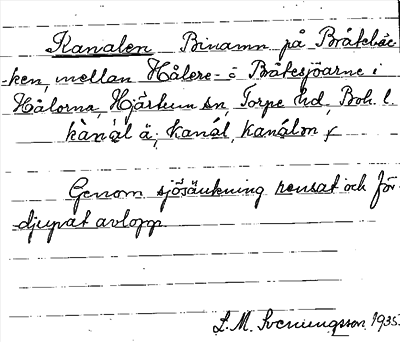 Kanalen Binamn på Bråtebäc
ken, mellan Hålere- o Båtesjöarne i
Hålorna, Hjärtum sn, Torpe hd, Boh. l.
kànál ä, kanál, kanálen
Genom sjösänkning rensat och för-
djupat avlopp.
L. M. Svenungsson 1935.